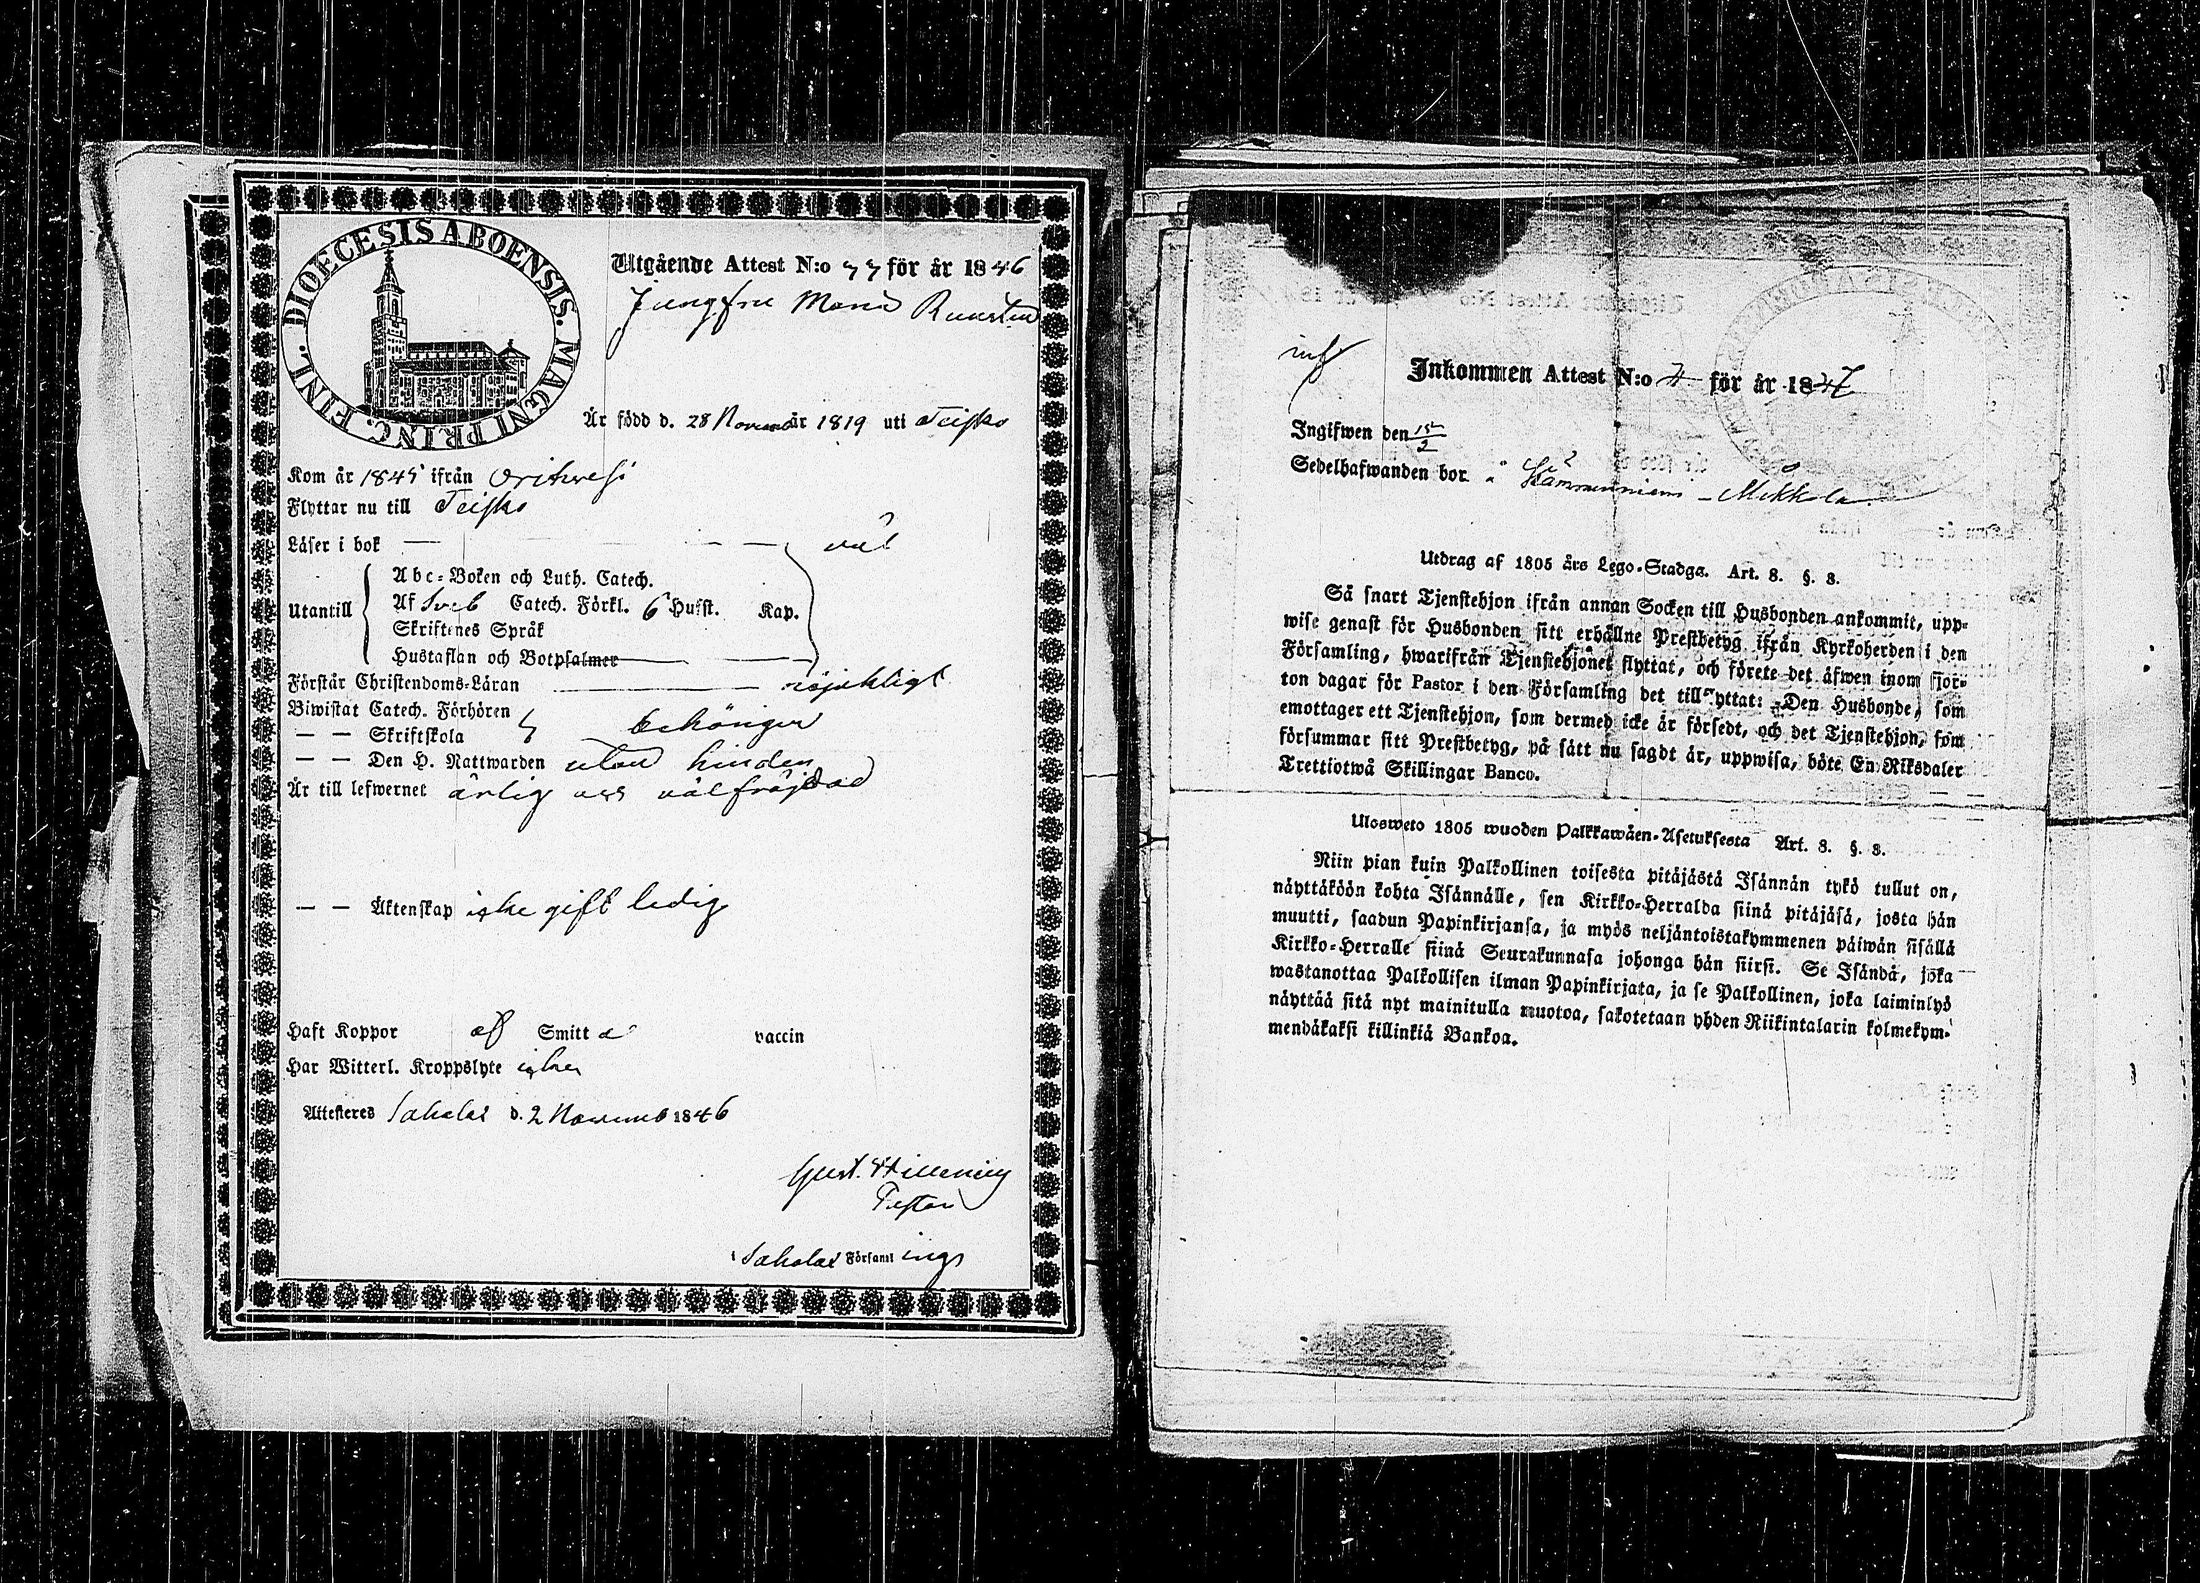 DIOECESIS ABOENSIS. MAGNI PRINC. FINL.
Utgående Attest N:o 77 för år 1846
Jungfru Maria
Är född d. 28 Novemb år 1819 uti Teisko
Kom år 1845 ifrån Orihvesi
Flyttar nu till Teisko
Läser i bok — — — väl
Utantill
Abc-Boken och Luth. Catech.
Af Sveb Catech. Förkl. 6 Hufst. Kap.
Skriftenes Språk
Hustaflan och Botpsalmer
Förstår Christendoms-Läran nöjaktigt
Biwistat Catech. Förhören
— — Skriftskola behörigen
— — Den H. Nattwarden utan hinder
Är till lefwernet ärlig och välfräjdad
— — Äktenskap icke gift ledig
Haft Koppor af Smitt a vaccin
Har Witterl. Kroppslyte icke
Attesteres Sahalax d. 2 Novemb 1846
Gust.
Pastor
i Sahalax Församlings
Inkommen Attest N:o 7 för år 1847
Ingifwen den 15/2
Sedelhafwanden bor i Kämmenniemi – Mikkola
Utdrag af 1805 års Lego-Stadga. Art. 8. §. 8.
Så snart Tjenstehjon ifrån annan Socken till Husbonden ankommit, upp-
wise genast för Husbonden sitt erhållne Prestbetyg ifrån Kyrkoherden i den
Församling, hwarifrån Tjenstehjonet flyttat, och förete det äfwen inom fjor-
ton dagar för Pastor i den Församling det till yttat: Den Husbonde, som
emottager ett Tjenstehjon, som dermed icke är försedt, och det Tjenstehjon, som
försummar sitt Prestbetyg, på sätt nu sagdt är, uppwisa, böte En Riksdaler
Trettiotwå Skillingar Banco.
Ulosweto 1805 wuoden Palkkawäen-Asetuksesta Art. 8. §. 8.
Niin pian kuin Palkollinen toisesta pitäjästä Isännän tykö tullut on,
näyttäköön kohta Isännälle, sen Kirkko-Herralda siinä pitäjäsä, josta hän
muutti, saadun Papinkirjansa, ja myös neljäntoistakymmenen päiwän sisällä
Kirkko-Herralle siinä Seurakunnasa johonga hän siirsi. Se Isändä, joka
wastanottaa Palkollisen ilman Papinkirjata, ja se Palkollinen, joka laiminlyö
näyttää sitä nyt mainitulla muotoa, sakotetaan yhden Riikintalarin kolmekym-
mendäkaksi killinkiä Bankoa.